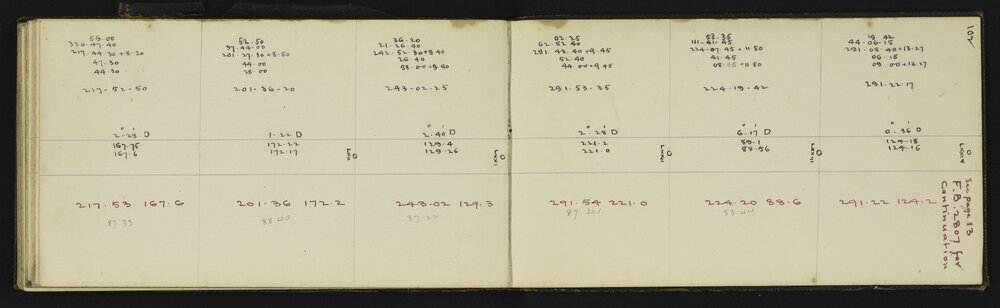 102
58.00
330.47.40
217.44.30 + 8.20
47.30
44.30
217-52-50
2-28 D
167.75
167.6
217.53 167.6
87.33
52.50
37.44.00
201.27.30 + 8.50
44.00
28.00
201-36-20
1-22 D
172.22
172.17
LXX
201-36 172.2
88.40
36.20
21.26.40
242.52.30 + 9.40
26.40
53.00 + 9.40
243-02-25
2-40 D
129.4
129.26
LXXI
243-02 129.3
87.22
02.25
62.52.40
291.43.40 + 9.45
52.40
44.00 + 9.45
291-53-35
2-28 D
221.2
221.0
291.54 221.0
53.35
111.41.45
224.07.45 + 11.50
41.45
08.15 + 11.50
224-19-42
6-17 D
89.1
88.56
224.20 88.6
83.44
19.42
44.06.15
291.08.40 + 13.27
06.15
09.00 + 13.27
291-22-17
0-36 D
124.18
124.16
LXXIX
291.22 124.2
See page 13
F.B. 2807 for
Continuation